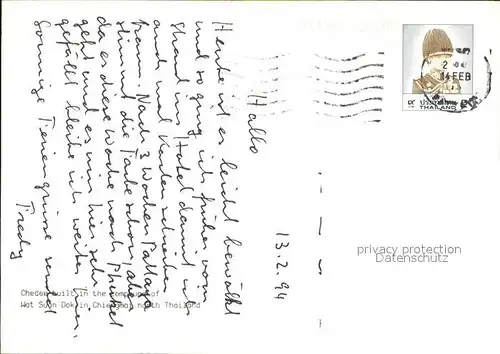 13.2.94
Hallo
Heute ist es leicht bewölkt
und so ging ich früher vom
Strand ins Hotel damit ich
auch mal Karten schreiben
kann. Nach 3 Wochen Pattaya
stimmt die Farbe schon, aber
da es diese Woche nach Phuket
geht und es mir hier sehr
gefällt bleibe ich weiter hier.
Sonnige Feriengrüsse sendet
Fredy
Chedee built in the compound of
Wat Suan Dok in Chiengmai north Thailand
THAILAND
FEB
privacy protection